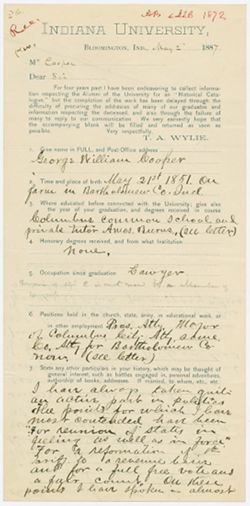 AB & LLB 1872
Rec.
INDIANA UNIVERSITY,
BLOOMINGTON, IND., May 2 1887.
Mr Cooper
Dear Sir
For four years past I have been endeavoring to collect information respecting the Alumni of the University for an "Historical Catalogue," but the completion of the work has been delayed through the difficulty of procuring the addresses of many of our graduates and information respecting the deceased, and also through the failure of many to reply to our communication. We very earnestly hope that the accompanying blank will be filled and returned as soon as possible. Very respectfully,
T. A. WYLIE.
1. Give name in FULL, and Post-Office address
George William Cooper
2. Time and place of birth May 21st 1851. On
farm in Bartholomew Co. Ind.
3. Where educated before connected with the University; give also the year of your graduation, and degrees received in course
Columbus common School and
private Tutor Amos Burns, (see letter)
4. Honorary degrees received, and from what Institution
None,
5. Occupation since graduation Lawyer
6. Positions held in the church, state, army, in educational work, or in other employment Pros. Atty, Mayor
of Columbus City Atty same,
Co. Atty for Bartholomew Co
now, (see letter)
7. State any other particulars in your history, which may be thought of general interest, such as battles engaged in, personal adventures, authorship of books, addresses. If married, to whom, etc., etc.
I have always taken quite
an active part in politics
the points for which I have
most contended have been
For reunion of States in
feeling as well as in force"
"For a reformation of the
tariff to a revenue basis
and for a full free vote and
a fair count, On these
points I have spoken in almost